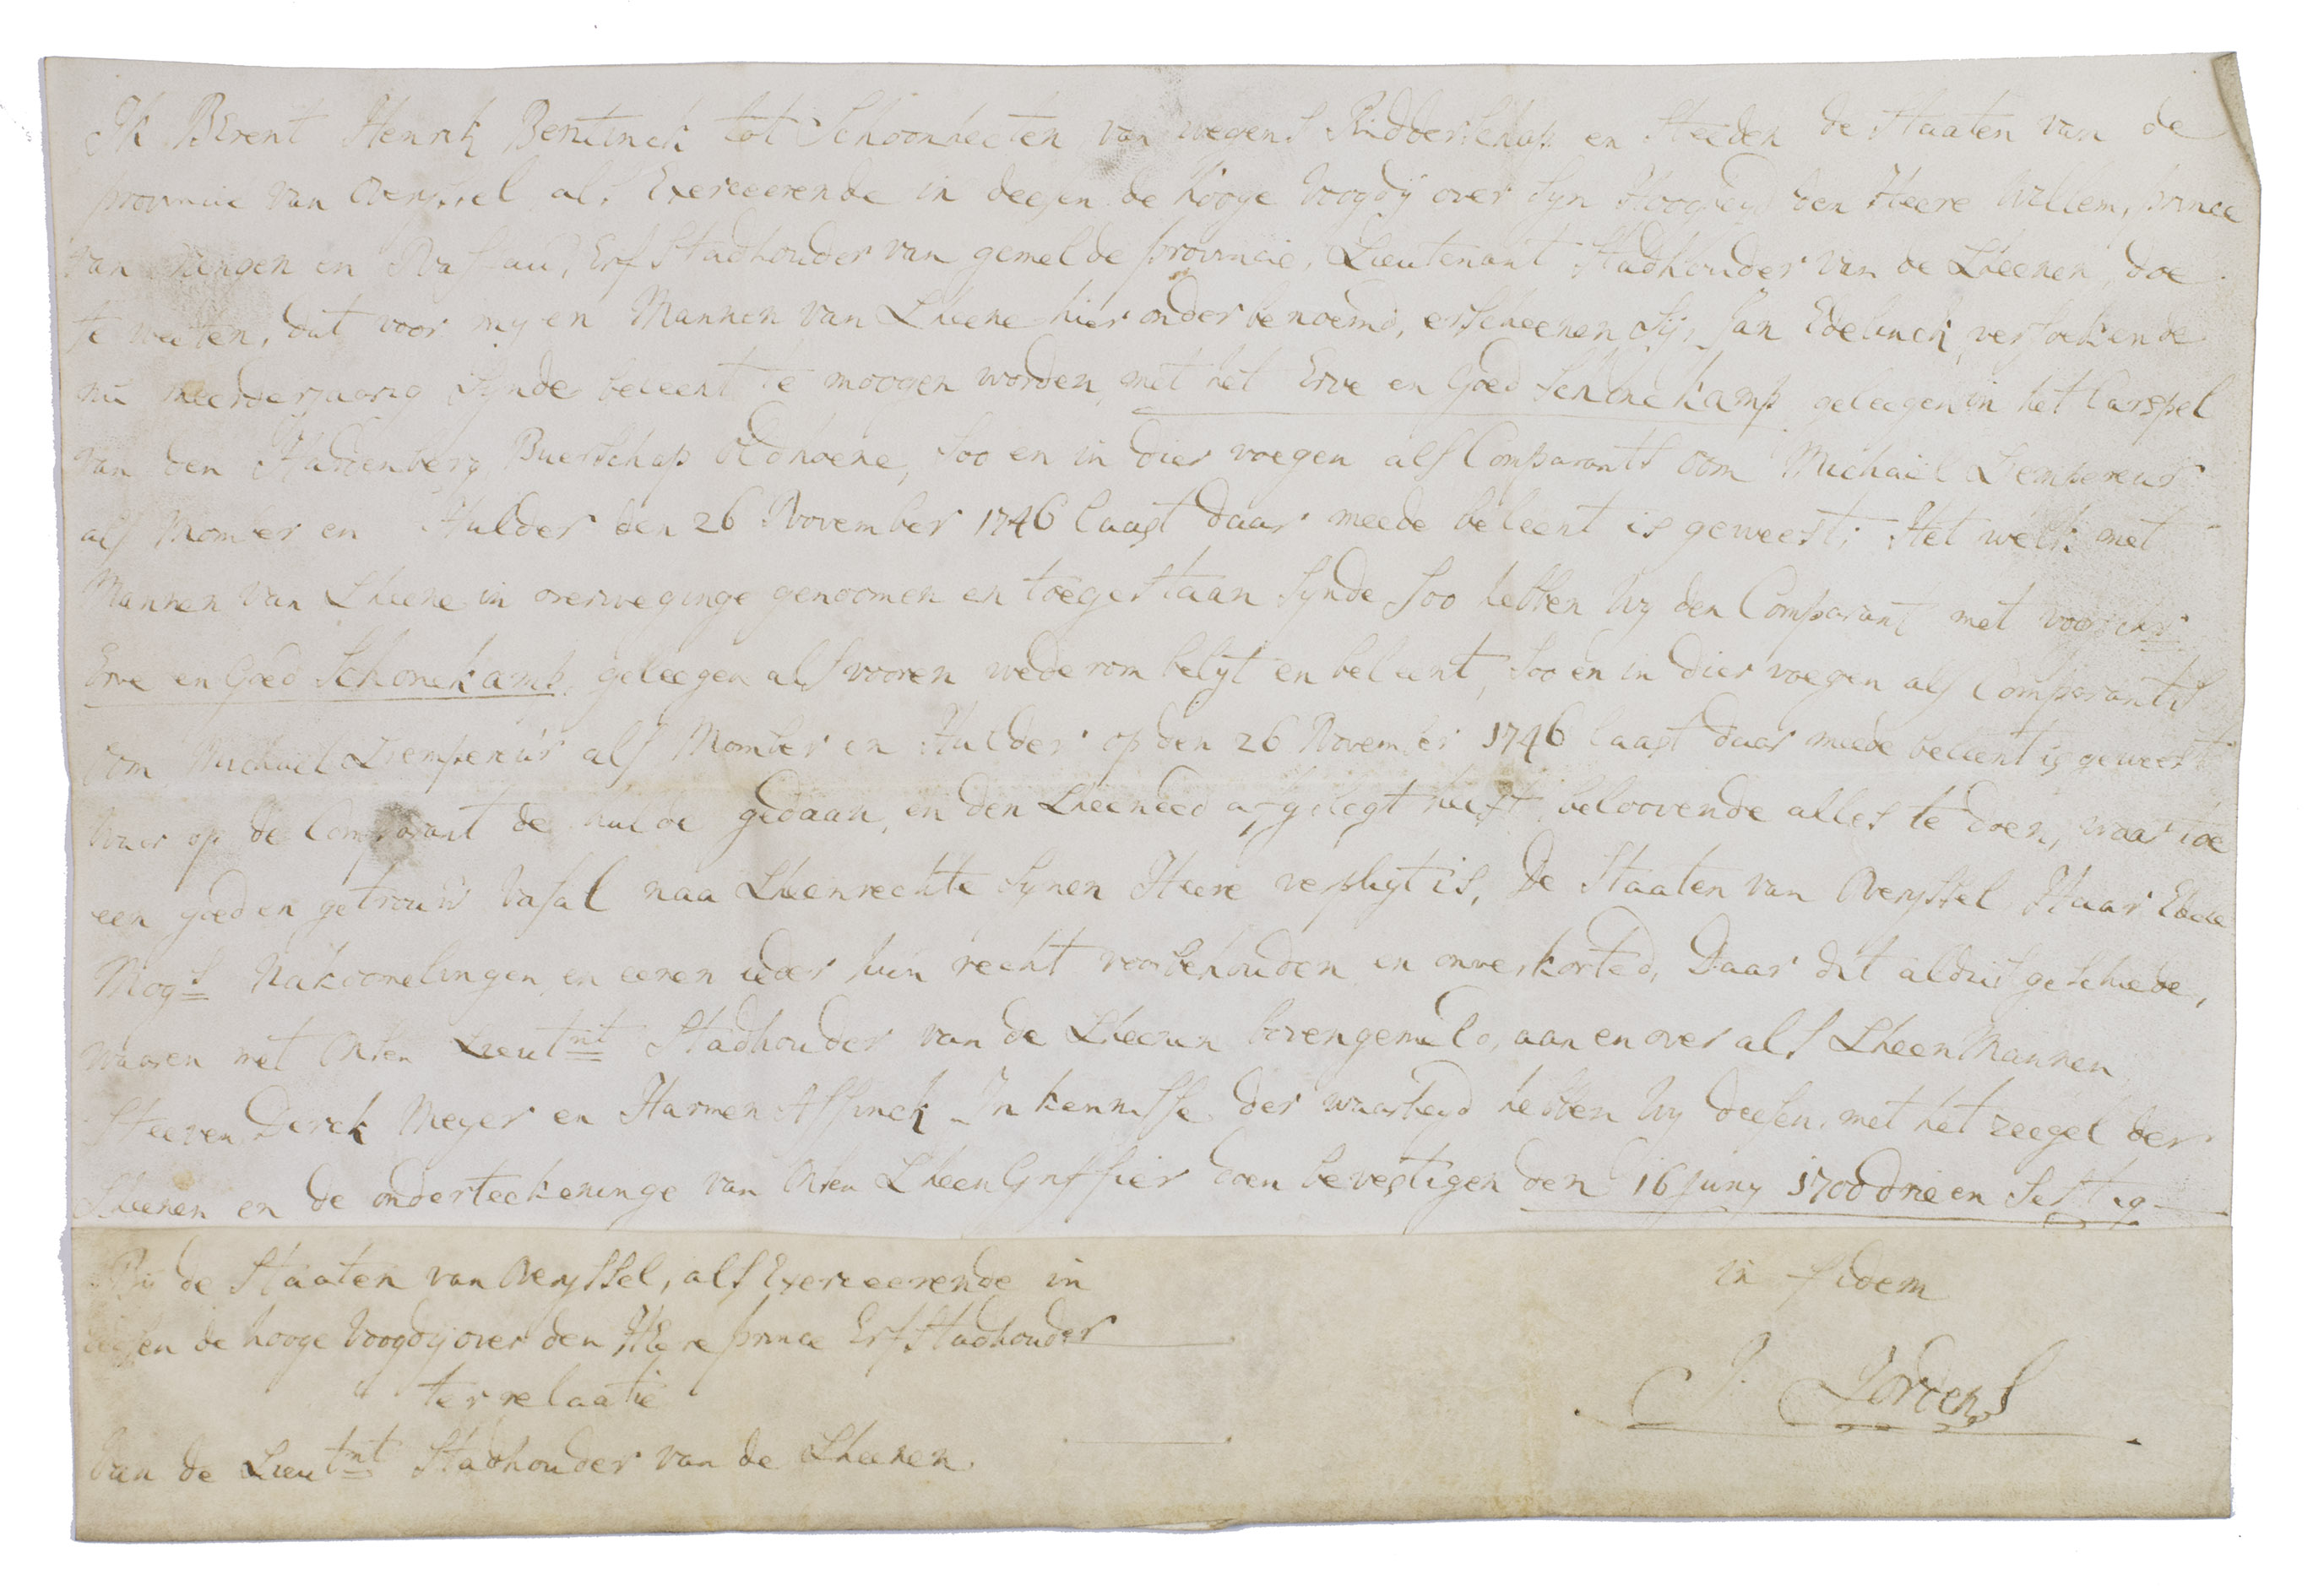 Ik Berent Henrik Bentinck tot Schoonheeten van wegens Ridderschap en Steeden de Staaten van de
provincie van Overyssel als Exerceerende in deesen de hooge Voogdij over Syn Hoogheyd den Heere Willem, prince
van Orangen en Nassau, Erf Stadhouder van gemelde provincie, Lieutenant Stadhouder van de Lheenen, doe
te weeten, dat voor my en Mannen van Lheene hier onder benoemd, erscheenen Sij, Jan Edelinck, versoekende
nu meerderjaarig Synde beleent te moogen worden, met het Erve en Goed Schonekamp geleegen in het Carspel
van den Hardenberg, Buerschap Oldhoene, Soo en in dier voegen als Comparants Oom Michaël Lempereur
als Momber en Hulder den 26 November 1746 laast daar meede beleent is geweest; Het welk met
Mannen van Lheene in overweginge genoomen en toegestaan Synde Soo hebben Wy den Comparant met voorschr
Erve en Goed Schonekamp, geleegen als vooren wederom belyt en beleent, Soo en in dier voegen als Comparants
Oom Michaël Lempereur als Momber en Hulder op den 26 November 1746 laast daar meede beleent is geweest
Waer op de Comparant de hulde gedaan, en den Lheeneed afgelegt heeft, beloovende alles te doen, waar toe
een goed en getrouw Vasal naa Lheenrechte Synen Heere verpligt is, De Staaten van Overyssel Haar Edele
Mogs Nakoomelingen, en eeren ieder hun recht voorbehouden en onverkorted, Daar dit aldus geschiede,
waaren met Onsen Lieutnt Stadhouder van de Lheenen bovengemeld, aan en over als Lheen Mannen
Steeven Derck Meyer en Harmen Assinck - In kennisse der waarheyd hebben Wy deesen met het zeegel der
Lheenen en de onderteekeninge van Onsen Lheen Griffier doen bevestigen den 16 Juny 1700 drie en Sestig
Bij de Staaten van Overyssel, als Exerceerende in
deesen de hooge Voogdij over den Heere prince Erf Stadhouder
ter relaatie
Van de Lieutnt Stadhouder van de Lheenen.
in fidem
J. Jordens